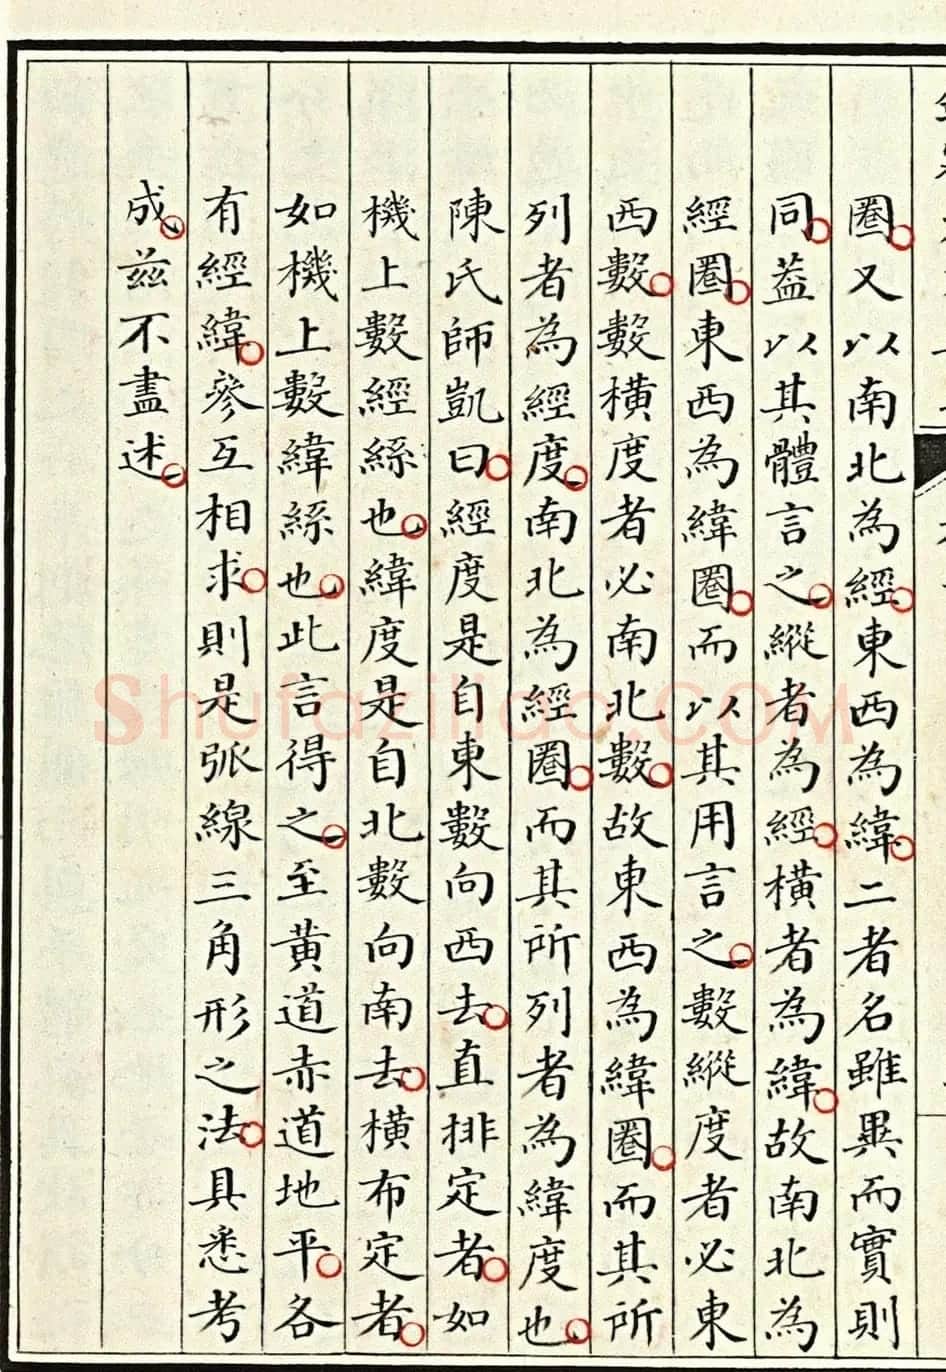 圈又以南北為經東西為緯二者名雖異而實則
同葢以其體言之縱者為經橫者為緯故南北為
經圈東西為緯圈而以其用言之數縱度者必東
西數數橫度者必南北數故東西為緯圈而其所
列者為經度南北為經圈而其所列者為緯度也
陳氏師凱曰經度是自東數向西去直排定者如
機上數經絲也緯度是自北數向南去橫布定者
如機上數緯絲也此言得之至黃道赤道地平各
有經緯參互相求則是弧線三角形之法具悉考
成茲不盡述
Shufaziliao.COM